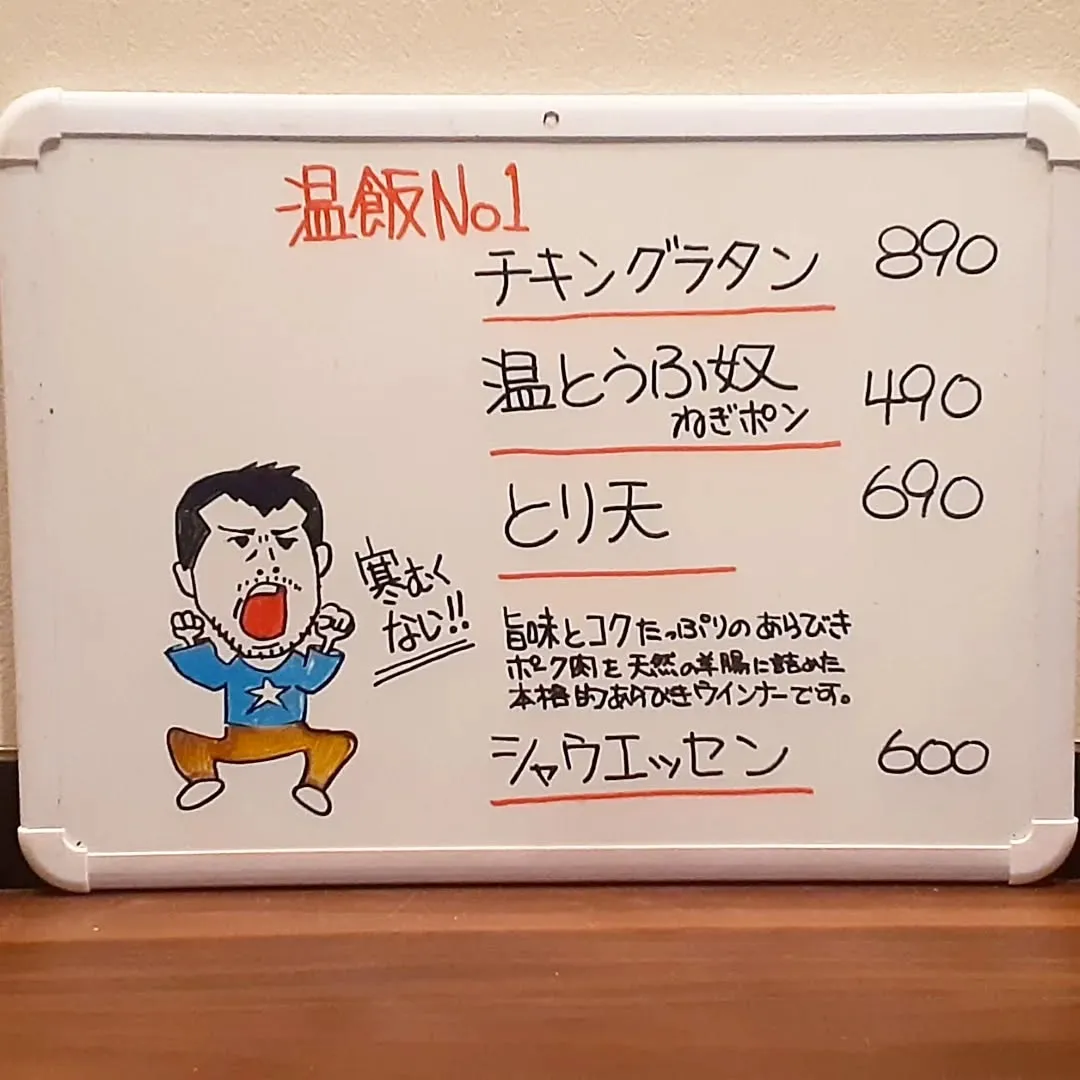 温飯No1
チキングラタン 890
温とうふ奴 490
ねぎポン
とり天 690
寒むく
ない!!
旨味とコクたっぷりのあらびき
ポーク肉を天然の羊腸に詰めた
本格的あらびきウインナーです。
シャウエッセン 600